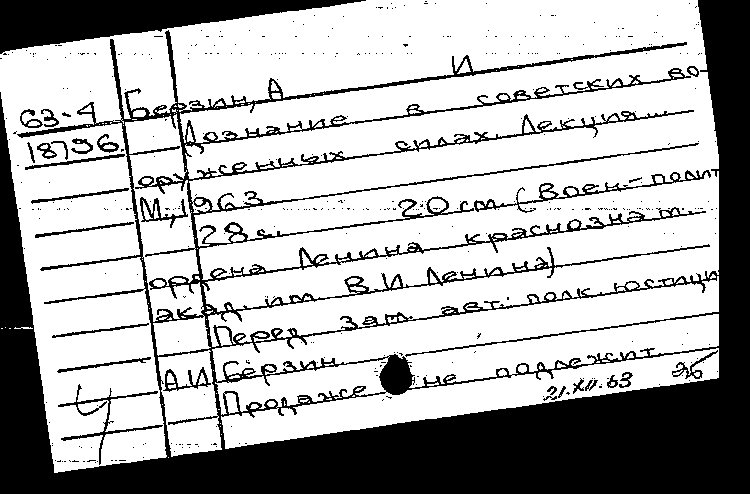 63-4 Берзин, А И
18796 Дознание в советских во-
оруженных силах. Лекция...
М., 1963.
28 с. 20 см. (Воен.-полит
ордена Ленина краснознам.
акад. им В.И. Ленина)
Перед загл. авт.: полк. юстици
А.И Берзин.
Продаже не подлежит.
21.XII.63